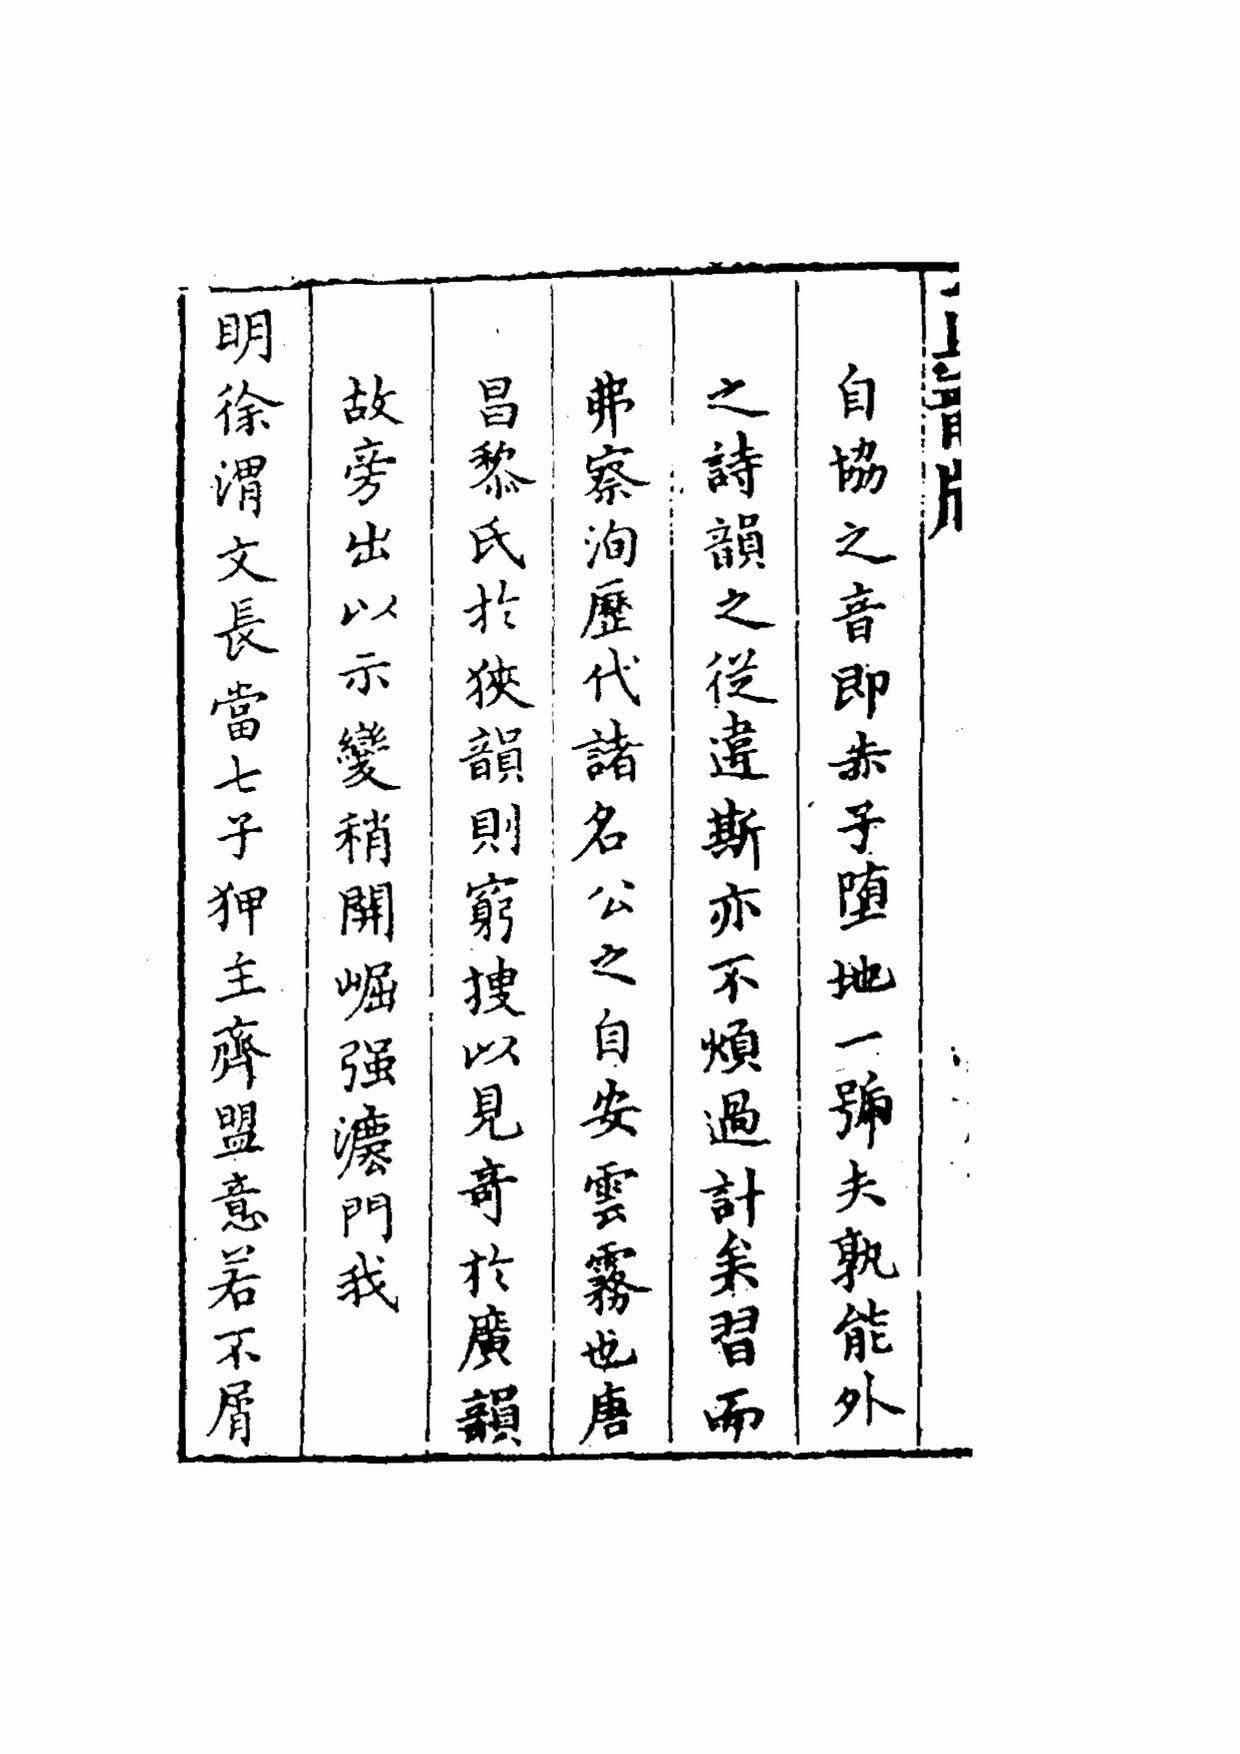 自協之音即赤子堕地一號夫孰能外
之詩韻之從違斯亦不煩過計矣習而
弗察洵歷代諸名公之自安雲霧也唐
昌黎氏於狹韻則窮搜以見奇於廣韻
故旁出以示變稍開崛强灋門我
明徐渭文長當七子狎主齊盟意若不屑